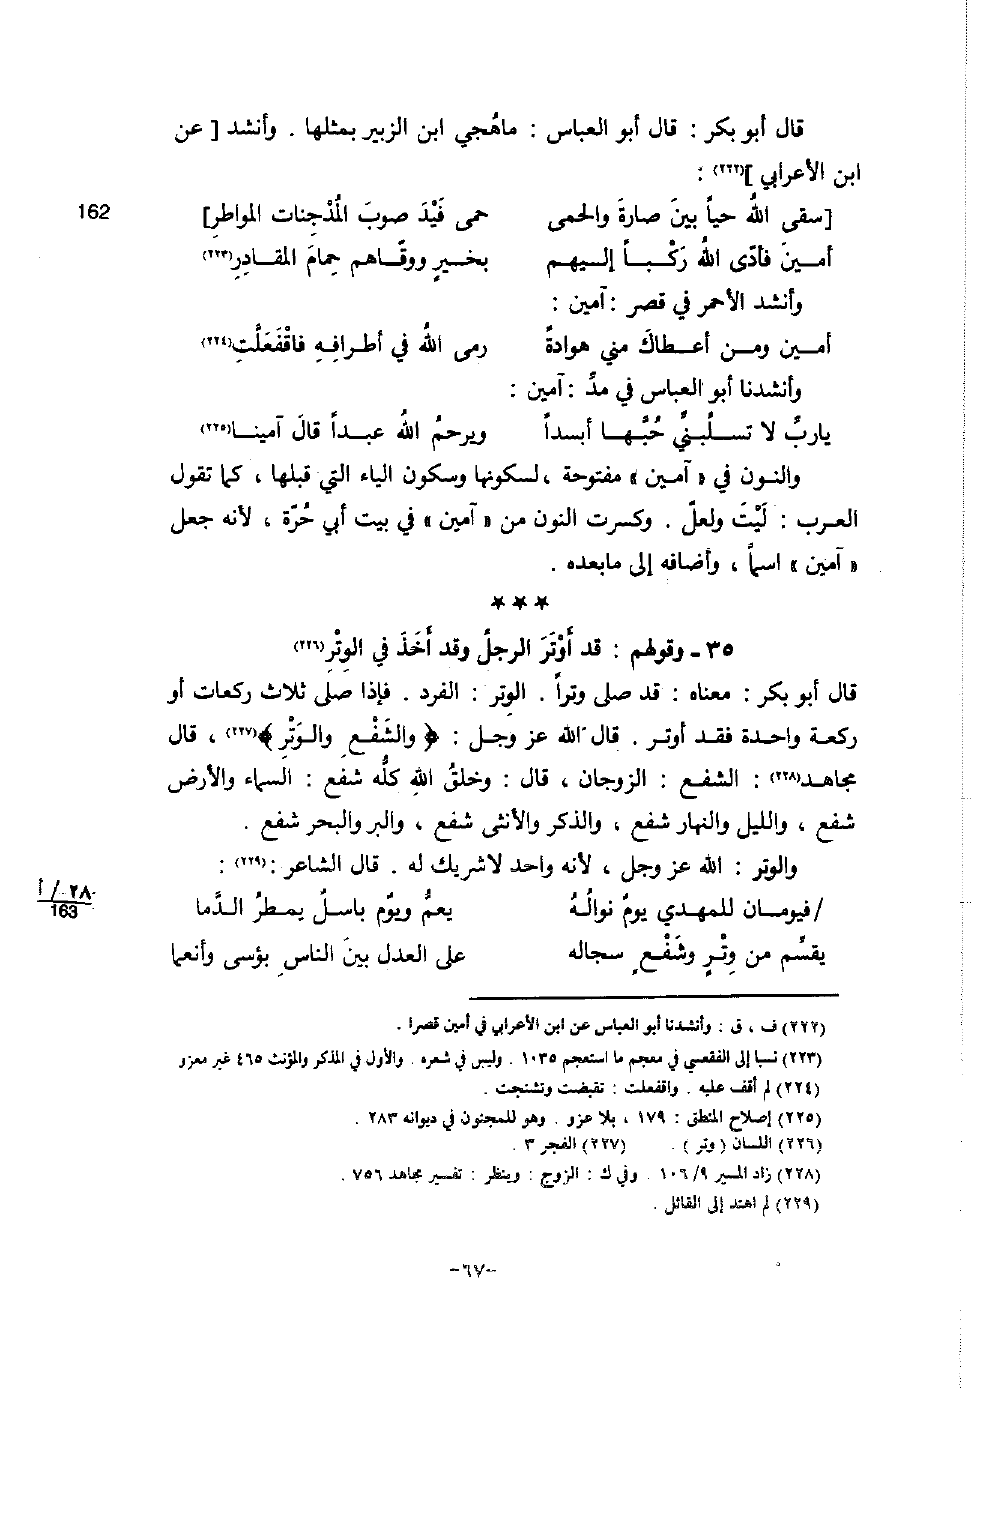 قال أبو بكر : قال أبو العباس : ماهُجي ابن الزبير بمثلها . وأنشد [ عن
ابن الأعرابي ](٢٢٢) :
162
[سقى اللهُ حياً بينَ صارةَ والحمى حمى فَيْدَ صوبَ المُدْجِنات المواطرِ]
أمـــينَ فأدّى اللهُ رَكْبـــاً إلـــيهـم بخـــيرٍ ووقّـاهم حِمامَ المقـــادِرِ(٢٢٣)
وأنشد الأحمر في قصر : آمين :
أمـــين ومـــن أعـــطاكَ مني هوادةً رمى اللهُ في أطرافِهِ فاقْفَعَلَّتِ(٢٢٤)
وأنشدنا أبو العباس في مدِّ : آمين :
ياربِّ لا تســـلُبنِّي حُبَّهـــا أبـــداً ويرحمُ اللهُ عبـــداً قالَ آمينـــا(٢٢٥)
والنون في « آمين » مفتوحة ، لسكونها وسكون الياء التي قبلها ، كما تقول
العرب : لَيْتَ ولعلّ . وكسرت النون من « آمين » في بيت أبي حُرّة ، لأنه جعل
« آمين » اسماً ، وأضافه إلى مابعده .
★★★
٣٥ ـ وقولهم : قد أَوْتَرَ الرجلُ وقد أَخَذَ في الوِتْرِ(٢٢٦)
قال أبو بكر : معناه : قد صلى وتراً . الوتر : الفرد . فإذا صلّى ثلاث ركعات أو
ركعة واحدة فقد أوتر . قال الله عز وجل : ﴿ والشَّفْعِ والوَتْرِ ﴾(٢٢٧) ، قال
مجاهد(٢٢٨) : الشفع : الزوجان ، قال : وخلقُ اللهِ كلُّه شفع : السماء والأرض
شفع ، والليل والنهار شفع ، والذكر والأنثى شفع ، والبر والبحر شفع .
والوتر : الله عز وجل ، لأنه واحد لاشريك له . قال الشاعر :(٢٢٩) :
٢٨٠ / أ
163
/فيومـــان للمهدي يومٌ نوالُهُ يعمُّ ويومٌ باسلٌ يمطرُ الدَّما
يقسِّم من وِتْرٍ وشَفْعٍ سجاله على العدل بينَ الناسِ بؤسى وأنعما
(٢٢٢) ف ، ق : وأنشدنا أبو العباس عن ابن الأعرابي في أمين قصرا .
(٢٢٣) نسبا إلى الفقعسي في معجم ما استعجم ١٠٣٥ . وليس في شعره . والأول في المذكر والمؤنث ٤٦٥ غير معزو
(٢٢٤) لم أقف عليه . واقفعلت : تقبضت وتشنجت .
(٢٢٥) إصلاح المنطق : ١٧٩ ، بلا عزو . وهو للمجنون في ديوانه ٢٨٣ .
(٢٢٦) اللسان ( وتر ) . (٢٢٧) الفجر ٣ .
(٢٢٨) زاد المسير ٩/ ١٠٦ . وفي ك : الزوج : وينظر : تفسير مجاهد ٧٥٦ .
(٢٢٩) لم اهتد إلى القائل .
-٦٧-